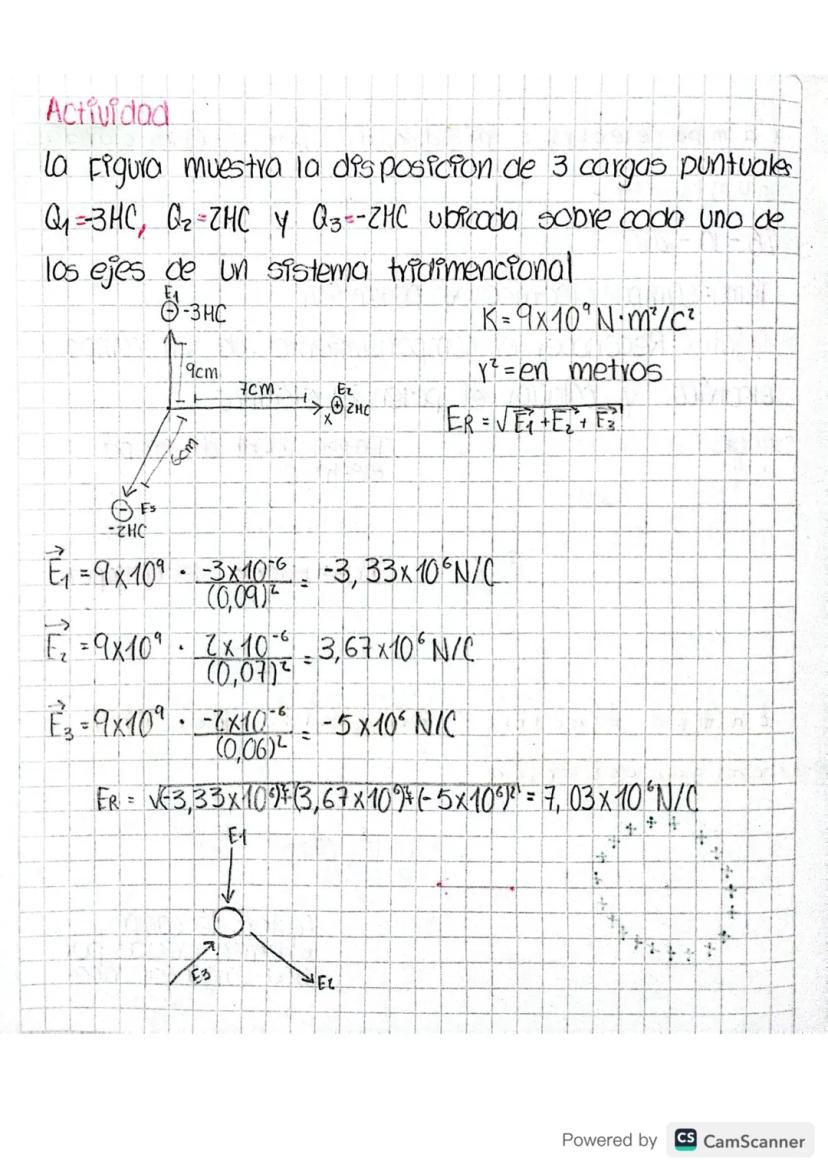 Actividad
La figura muestra la disposicion de 3 cargas puntuales
Q₁=-3HC, Q₂=2HC y Q₃=-2HC ubicada sobre cada uno de
los ejes de un sistema tridimencional
E1
⊖-3HC
K=9x10⁹ N·m²/c²
9cm
r²=en metros
7cm
E2
⊕2HC
x
E_R = √E₁→+E₂→+E₃→
6cm
⊖ E3
-2HC
E₁→ = 9x10⁹ · -3x10⁻⁶/(0,09)² = -3,33x10⁶N/C
E₂→ = 9x10⁹ · 2x10⁻⁶/(0,07)² = 3,67x10⁶ N/C
E₃→ = 9x10⁹ · -2x10⁻⁶/(0,06)² = -5x10⁶ N/C
E_R = √(-3,33x10⁶)²+(3,67x10⁶)²+(-5x10⁶)² = 7,03x10⁶N/C
E1
E3
E2
Powered by CS CamScanner